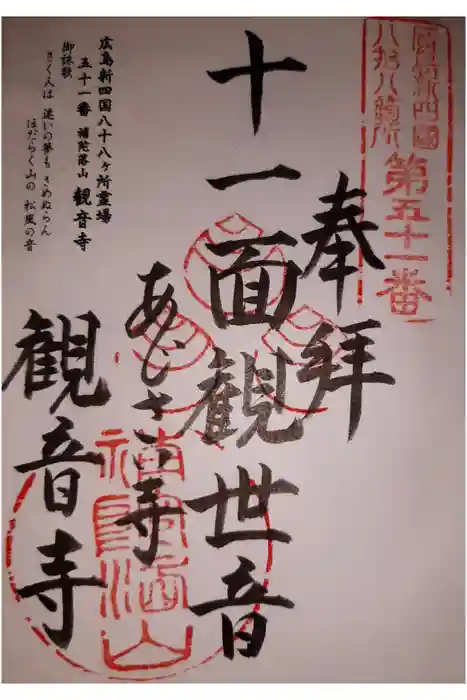 奉拝
十一面観世音
あじさい寺
観音寺
広島新四国八十八ヶ所霊場
五十一番 補陀落山 観音寺
御詠歌
きく人は 迷いの夢も さめぬらん
ほだらく山の 松風の音
広島新四國
八十八箇所
第五十一番